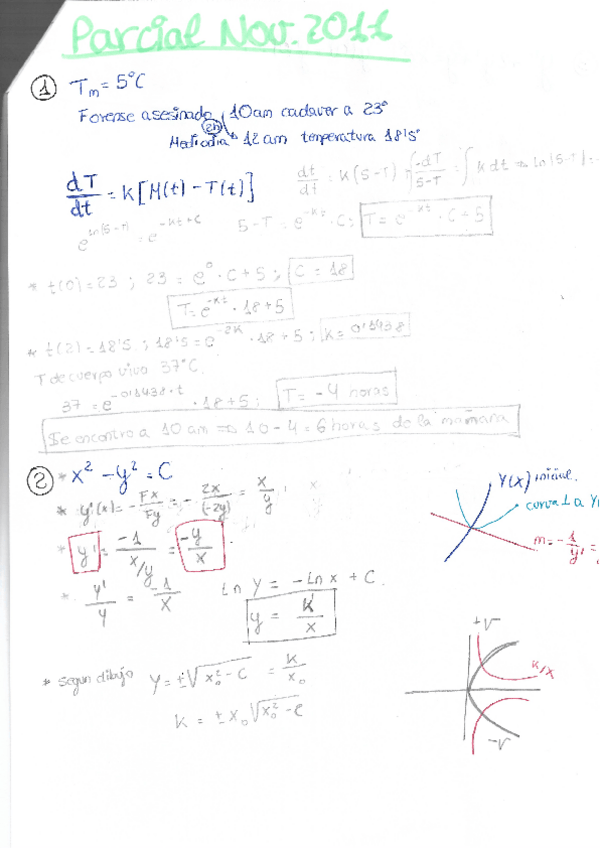 Parcial Nov. 2011
① Tm = 5°C
Forense asesinado 10am cadaver a 23°
2h
Mediodia 12am temperatura 18'5°
dT/dt = K[M(t) - T(t)]
dt/dt = K(5-T) ∫-dT/5-T = ∫Kdt ⇒ Ln(5-T) = -
e^ln(5-T) = e^-Kt+C 5-T = e^-Kt · C; T = e^-Kt · C + 5
* t(0) = 23 ; 23 = e^0 · C + 5 ; C = 18
T = e^-Kt · 18 + 5
* t(2) = 18'5 ; 18'5 = e^-2K · 18 + 5 ; K = 0'1438
T de cuerpo vivo 37°C.
37 = e^-0'1438·t · 18 + 5 ; T = -4 horas
Se encontro a 10 am ⇒ 10 - 4 = 6 horas de la mañana
② * x² - y² = C
* y'(x) = - Fx/Fy = - 2x/(-2y) = x/y
* y' = -1/x/y = -y/x
* y'/y = -1/x Ln y = -Ln x + C.
y = K/x
Y(x) inicial.
curva ⊥ a Y
m = -1/y' =
* segun dibujo y = ±√x₀² - C = K/x₀
K = ± x₀ √x₀² - C
+√
K/x
-√